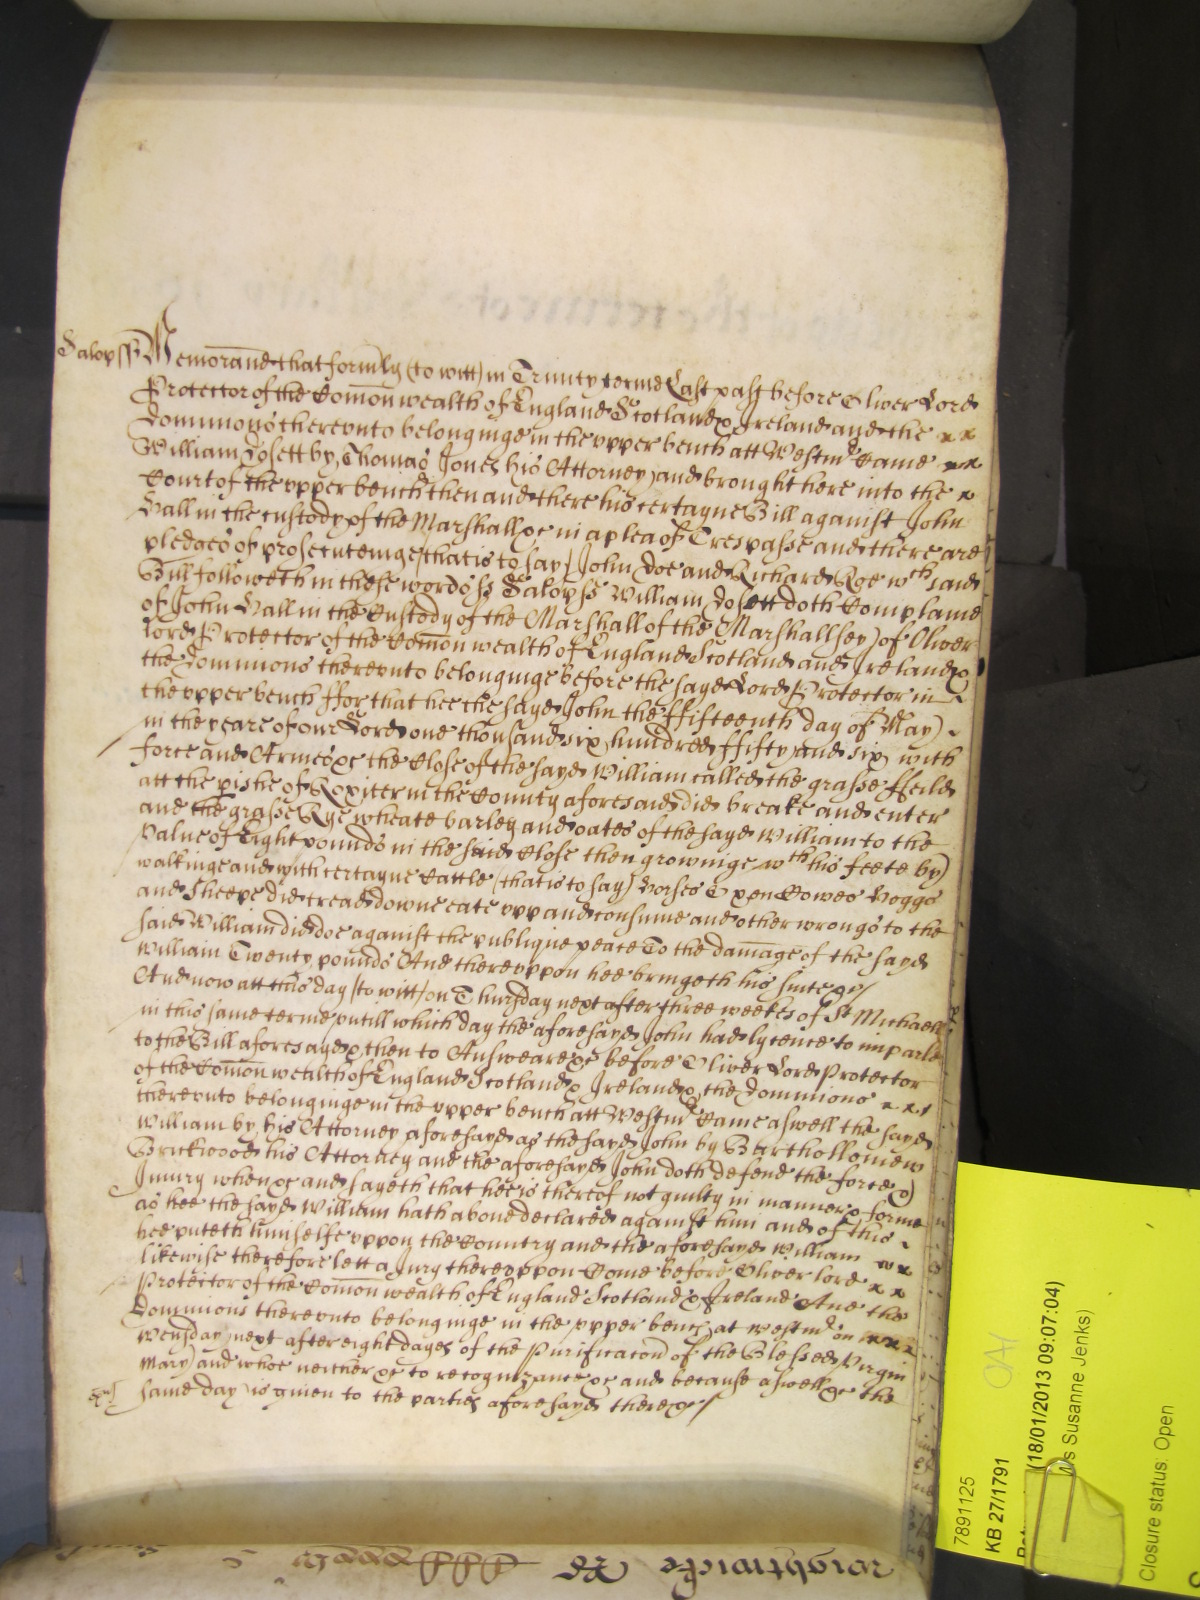 Salop ss Memorand that form̄ly (to witt) in Trinity terme Last past before Oliver Lord
Protector of the Com̄on wealth of England Scotland & Ireland and the
dominions therevnto belonginge in the vpper bench att Westmr Came
William Gosett by Thomas Jones his Attorney and brought here into the
Court of the vpper bench then and there his certayne Bill against John
Hall in the custody of the Marshall &c in a plea of Trespasse and there are
pledges of prosecuteinge (that is to say) John Doe and Richard Roe wch said
Bill followeth in these words ss Salop ss William Gosett doth Complaine
of John Hall in the Custody of the Marshall of the Marshallsey of Oliver
lord Protector of the Com̄on wealth of England Scotland and Ireland &
the Dominions therevnto belonginge before the sayd Lord Protector in
the vpper bench ffor that hee the sayd John the ffifteenth day of May
in the yeare of our Lord one thousand six hundred ffifty and six with
force and Armes &c the Close of the sayd William called the grasse ffeild
att the pishe of Roxiter in the County aforesaid did breake and enter
and the grasse Rye wheate barley and oates of the sayd William to the
value of Eight pounds in the said Close then growinge wth his feete by
walkinge and with certayne Cattle (that is to say) horses Oxen Cowes hoggs
and Sheepe did tread downe eate vpp and consume and other wrongs to the
said William did doe against the publique peace To the dam̄age of the sayd
William Twenty pounds And therevppon hee bringeth his suite &c
And now att this day (to witt) on Thursday next after three weekes of St Michaell
in this same terme vntill which day the aforesayd John had lycence to imparle
to the Bill aforesayd & then to Answeare &c before Oliver Lord Protector
of the Com̄on wealth of England Scotland & Ireland & the dominions
therevnto belonginge in the vpper bench att Westmr Came aswell the sayd
William by his Attorney aforesayd as the sayd John by Barthollomew
his Attorney and the aforesayd John doth defend the force &
Iniury when &c and sayeth that hee is thereof not guilty in manner & forme
as hee the sayd William hath aboue declared against him and of this
hee puteth himselfe vppon the Country and the aforesayd William
likewise therefore lett a Jury therevppon Come before Oliver lord
Protector of the Com̄on wealth of England Scotland & Ireland And the
Dominions therevnto belonginge in the vpper bench at westmr on
Wensday next after eight days of the Purificac̄on of the Blessed Virgin
Mary and whoe neither &c to recognizance &c and because aswell &c the
same day is giuen to the parties aforesayd there &c
7891125
KB 27/1791
(18/01/2013 09:07:04)
Susanne Jenks)
Closure status: Open